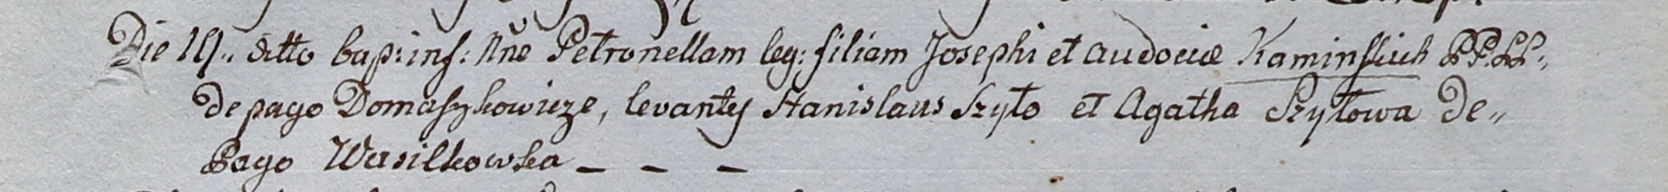 Die 19.. ditto bap: inf: nn̄e Petronellam leg: filiam Josephi et Audociæ Kaminskich PP. LL.,
de pago Domaszkowicze, levantes Stanislaus Szyło et Agatha Szyłowa de„
Pago Wasilkowka – – –